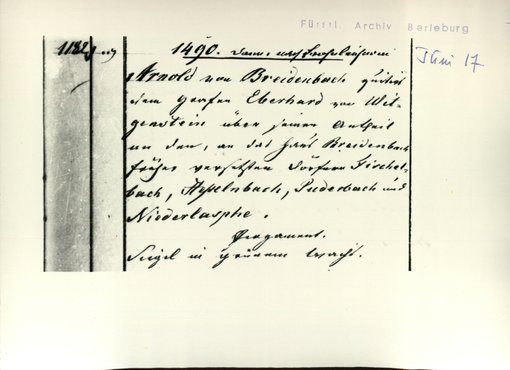 Fürstl. Archiv Berleburg
1490. Donn. nach Fronleichnam
Juni 17
Arnold von Breidenbach quitirt
dem Grafen Eberhard von Wit-
genstein über seinen Antheil
an den, an das Haus Breidenbach
früher versetzten Dörfern Fischel-
bach, Hesselnbach, Puderbach und
Niederlasphe.
Pergament.
Siegel in grünem Wachs.